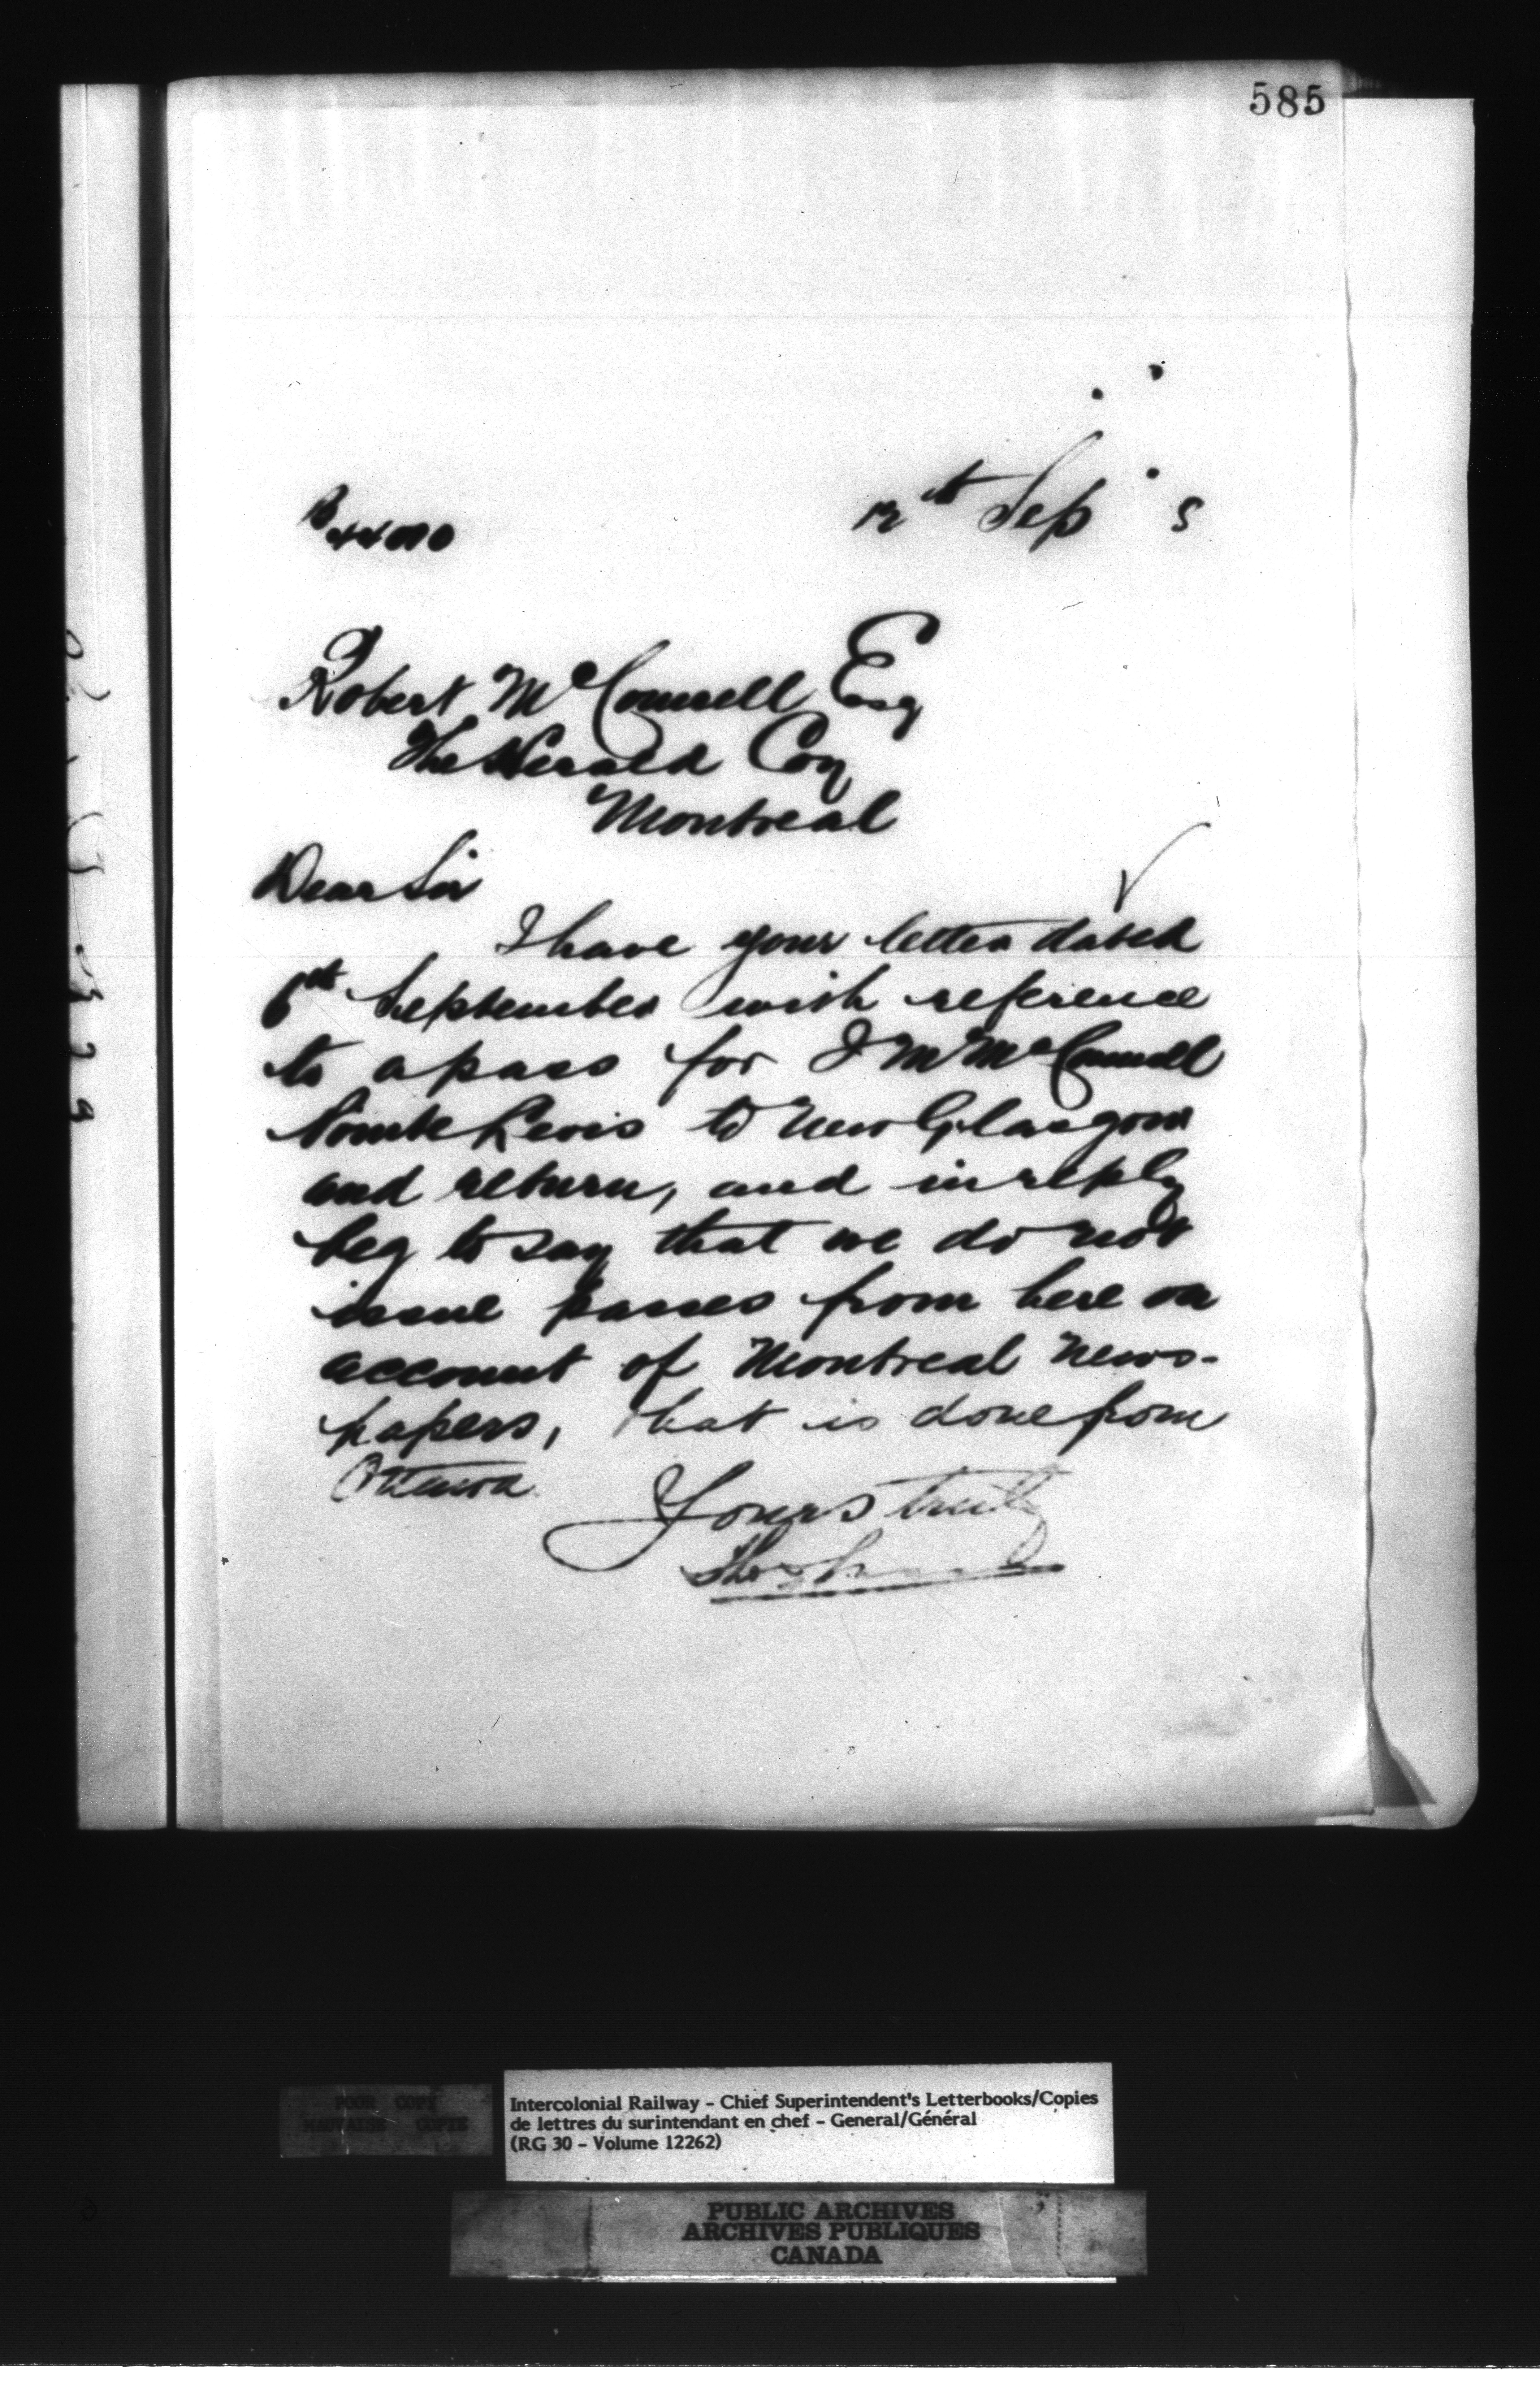 585
12th Sep
Robert McConnell Esq
The Herald Coy
Montreal
Dear Sir
I have your letter dated
6th September with reference
to a pass for J M McConnell
Pointe Levis to New Glasgow
and return, and in reply
beg to say that we do not
issue passes from here on
account of Montreal News-
papers, that is done from
Ottawa.
Yours truly
POOR COPY
MAUVAISE COPIE
Intercolonial Railway - Chief Superintendent's Letterbooks/Copies
de lettres du surintendant en chef - General/Général
(RG 30 - Volume 12262)
PUBLIC ARCHIVES
ARCHIVES PUBLIQUES
CANADA